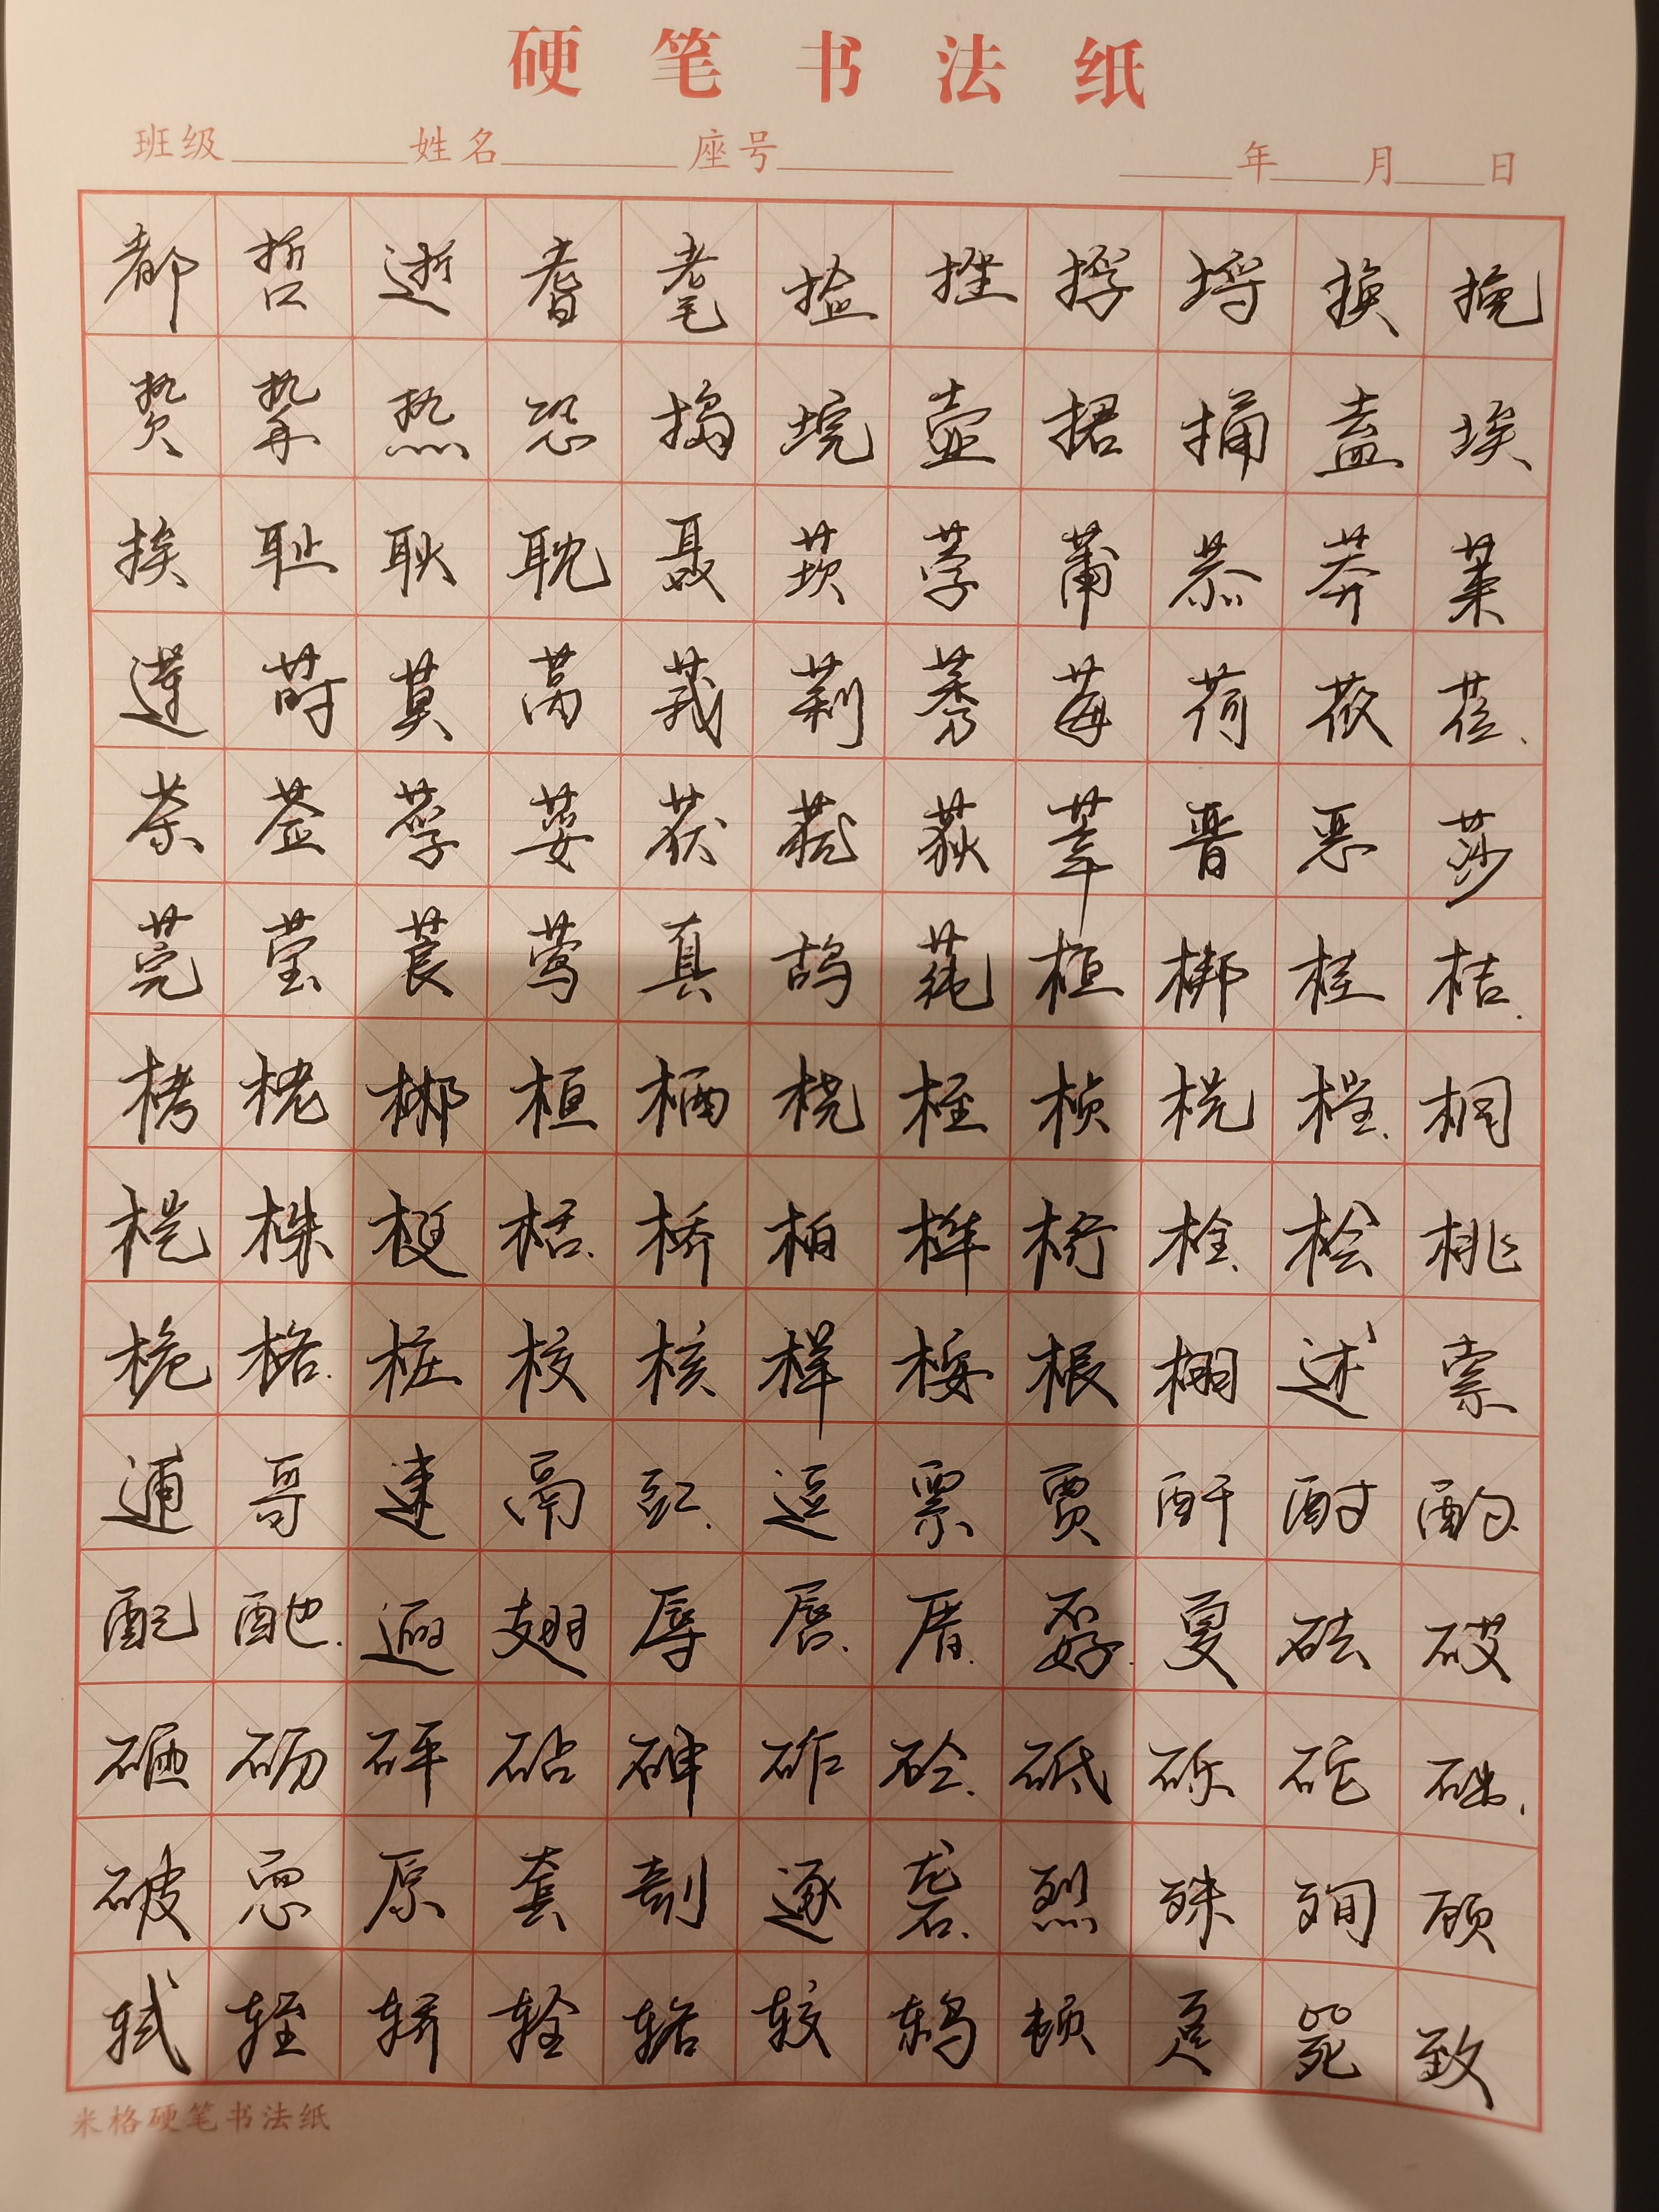 硬笔书法纸
班级 姓名 座号 年 月 日
都哲逝耆耄捡挫捋埒换挽
贽挚热恐捣垸壶捃捅盍埃
挨耻耿耽聂莰荸莆恭莽莱
莲莳莫莴莪莉莠莓荷莜莅
荼莶莩荽获莸荻莘晋恶莎
莞莹莨莺真鸪莼框梆桂桔
栲栳郴桓栖桡桎桢桄档桐
桤株梃栝桥桕桦桁栓桧桃
桅格桩校核样桉根栩逑索
逋哥速鬲豇逗栗贾酐酎酌
配酏逦翅辱唇厝孬夏砝砹
砸砺砰砧砷砟砼砥砾砣础
破恧原套剞逐砻烈殊殉顾
轼轾轿辁辂较鸫顿趸毙致
米格硬笔书法纸